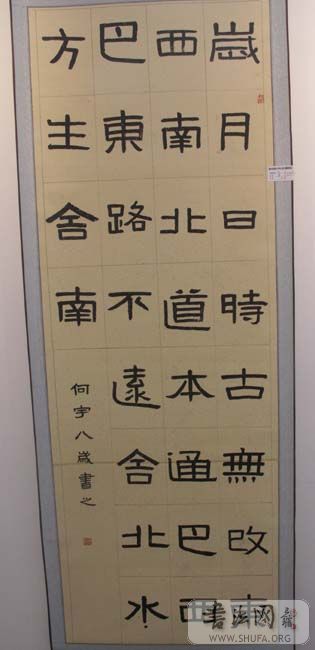 歲月日時古無改東
西南北道本通巴西
巴東路不遠舍北水
方生舍南
何宇八歲書之
书法网
WWW.SHUFA.ORG